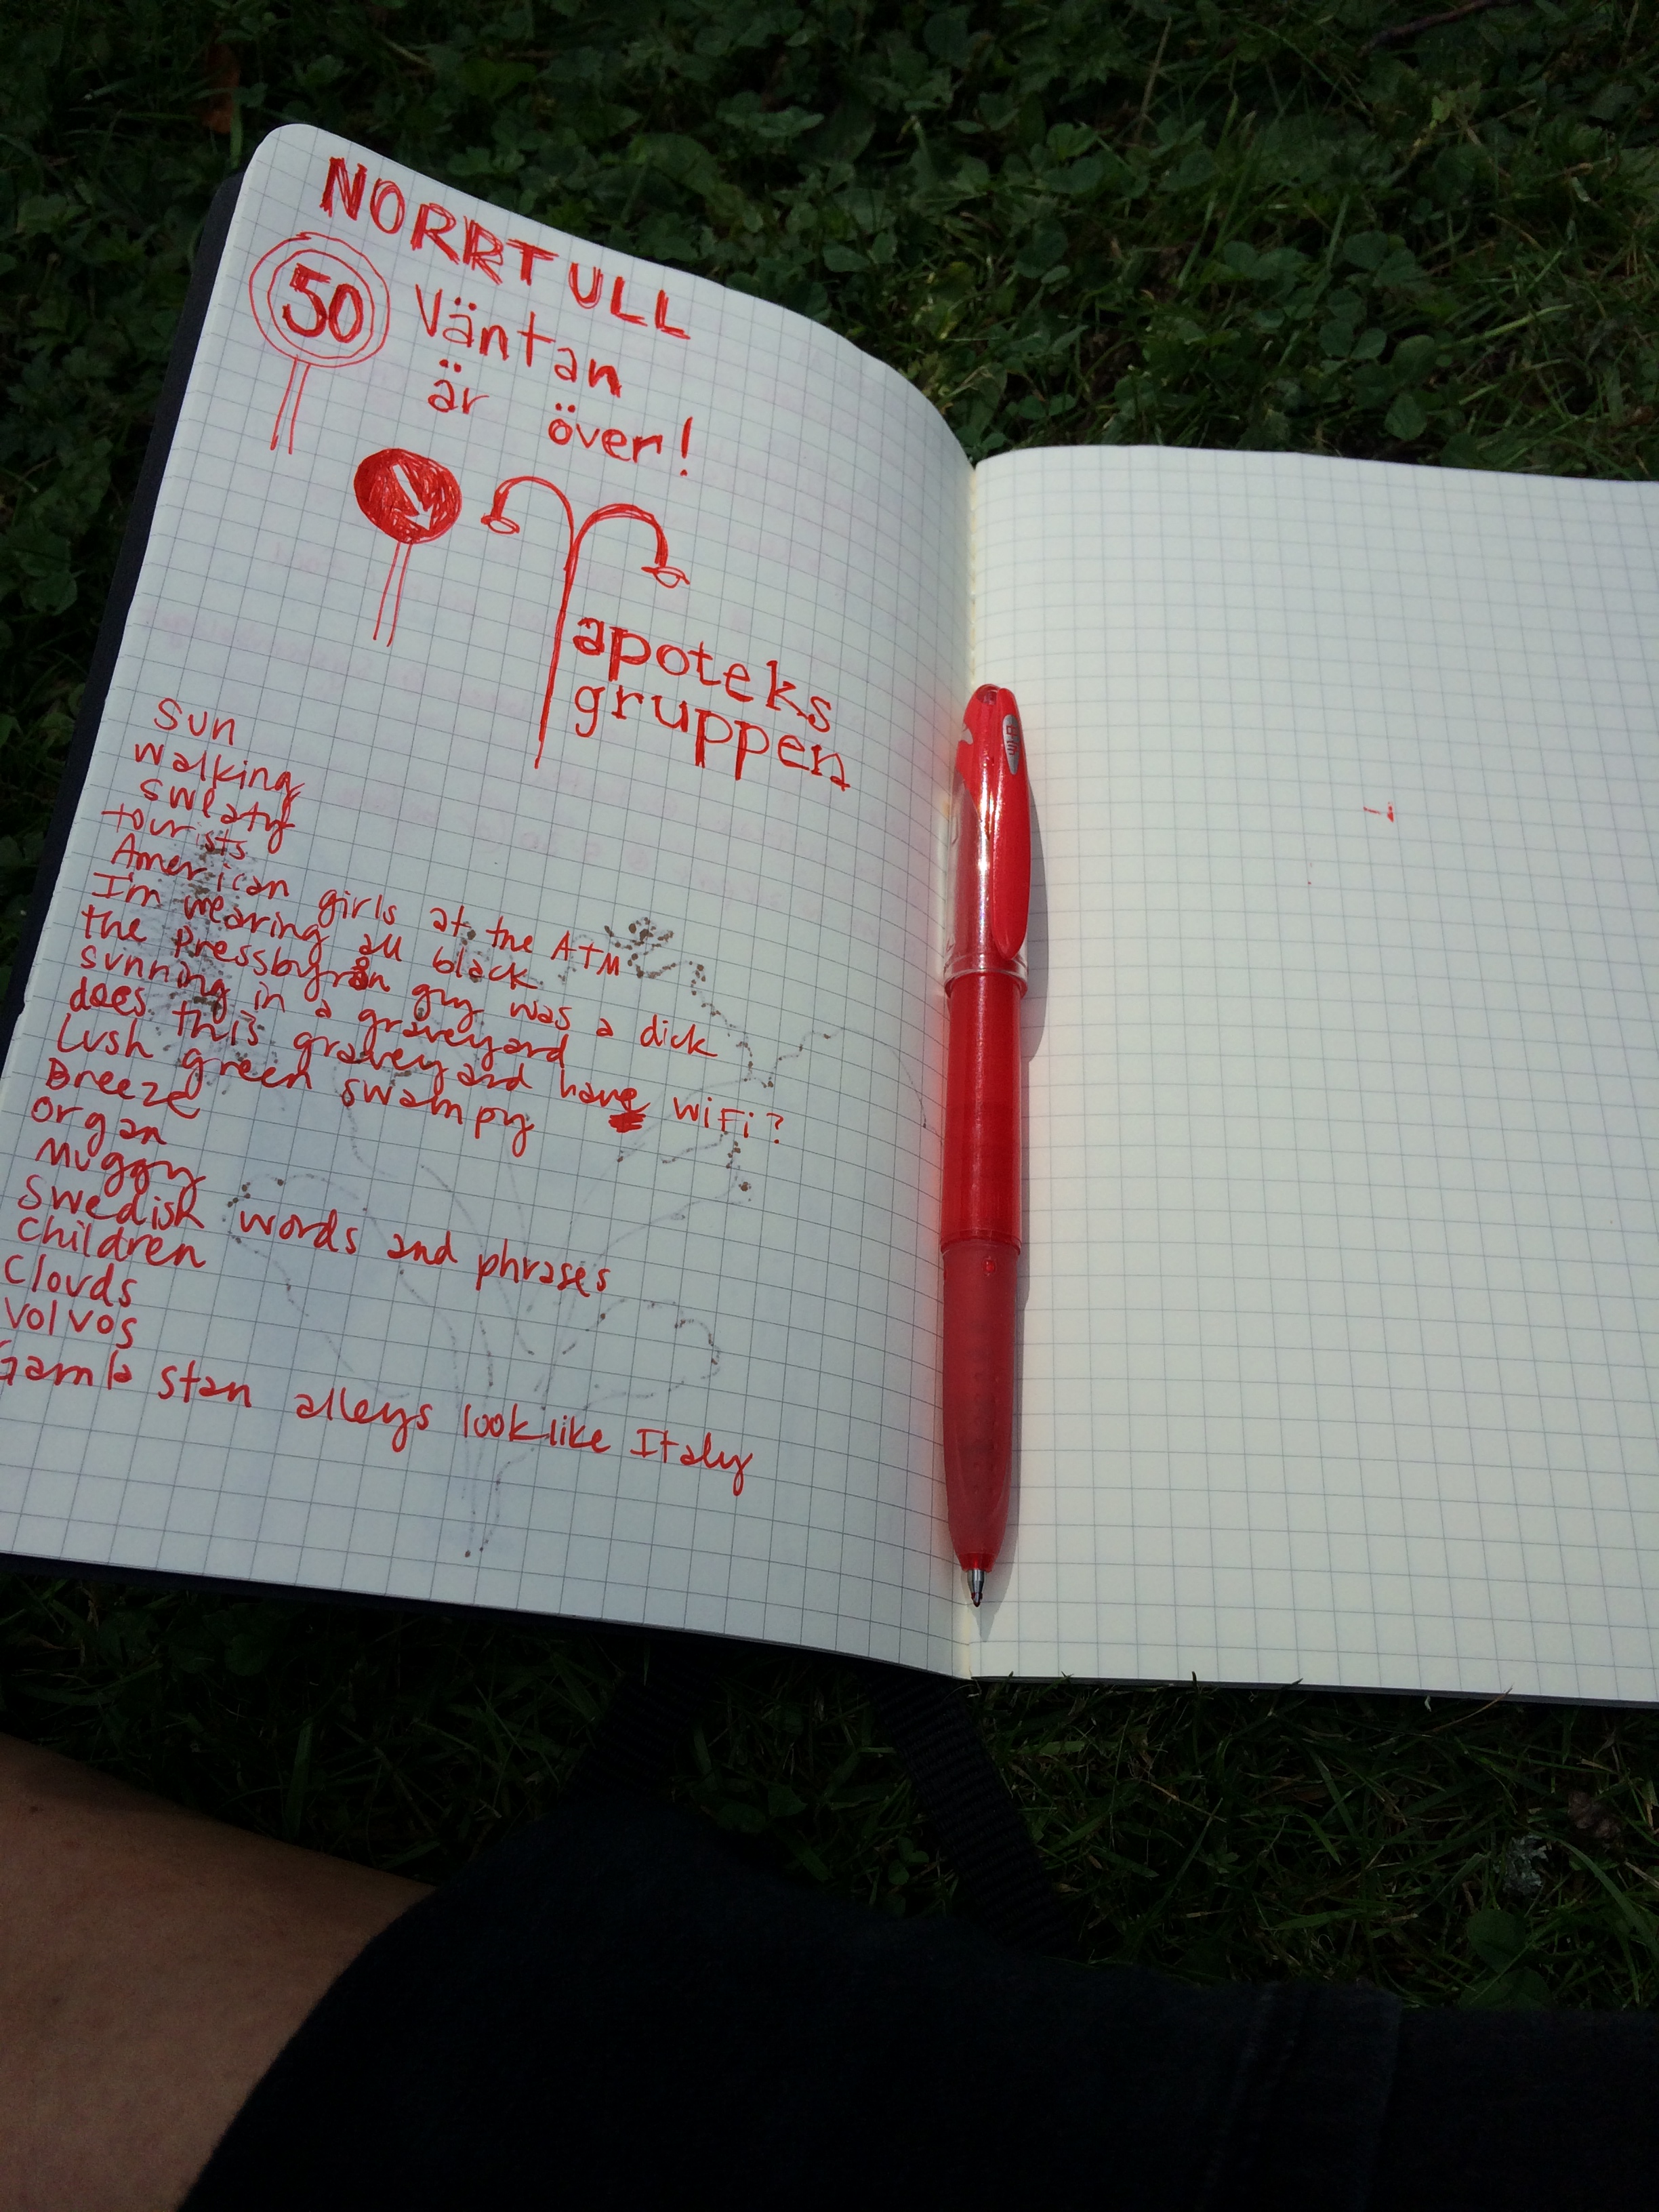 NORRTULL
50
Väntan
är över!
apoteks
gruppen
Sun
walking
sweaty
tourists
American girls at the ATM
I'm wearing all black
the Pressbyrån guy was a dick
sunning in a graveyard
does this graveyard have WiFi?
Lush green swampy
Breeze
organ
Muggy
Swedish words and phrases
Children
Clouds
Volvos
Gamla stan alleys look like Italy